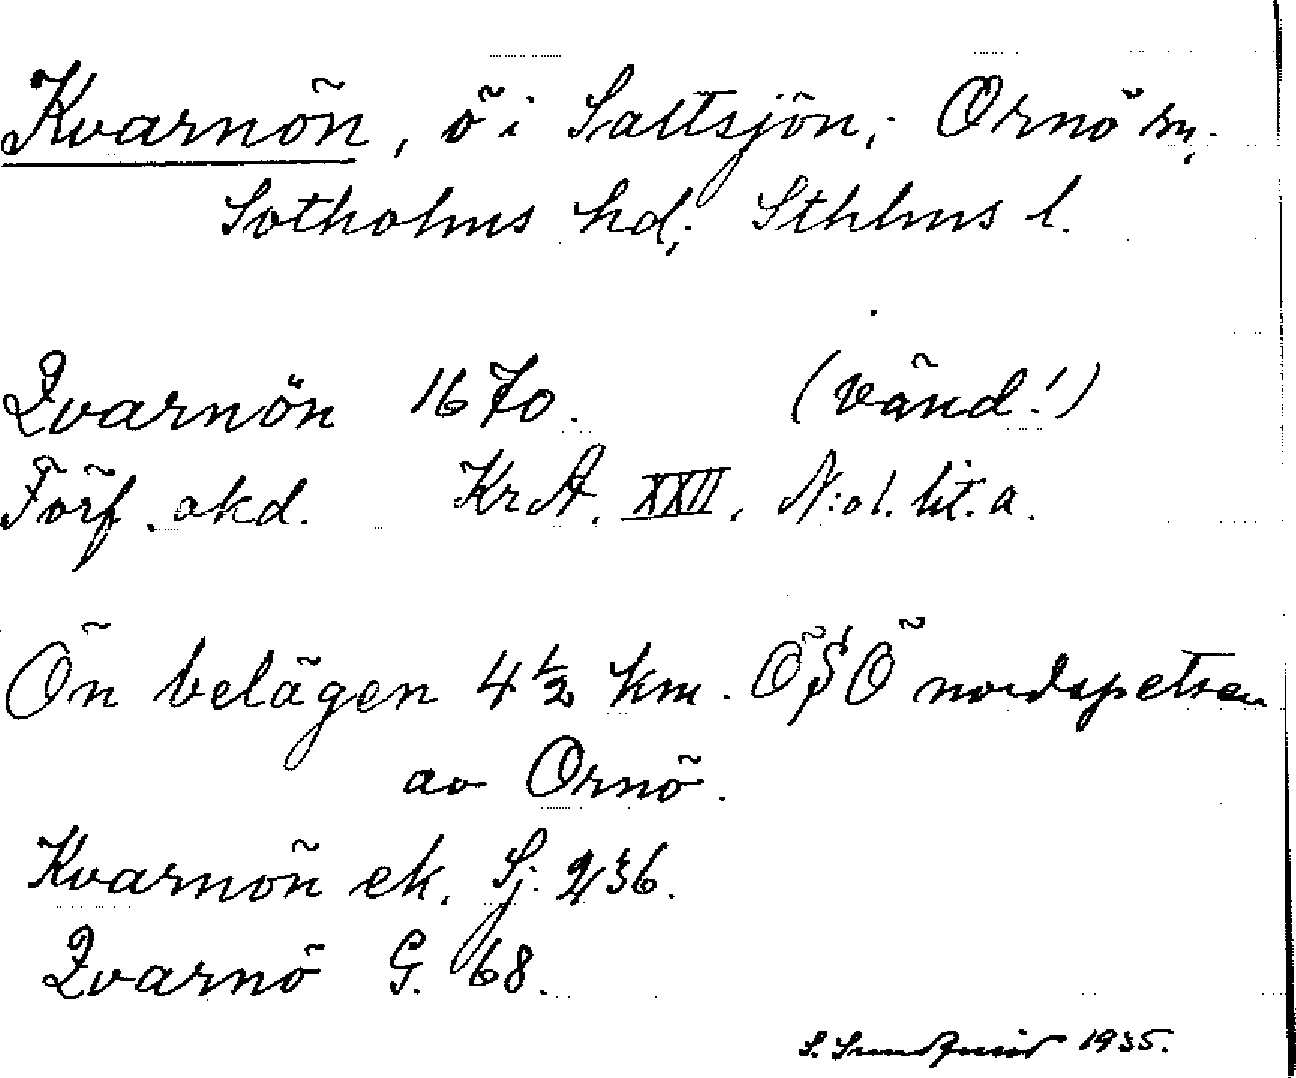 Kvarnön, ö i Saltsjön; Ornö sn;
Sotholms hd; Sthlms l.
Qvarnön 1670. (vänd!)
Förf. okd. KrA. XXII. N:o 1. lit. a.
Ön belägen 4 ½ km. ÖSÖ nordspetsen
av Ornö.
Kvarnön ek. Sj. 236.
Qvarnö G. 68.
S. 1935.